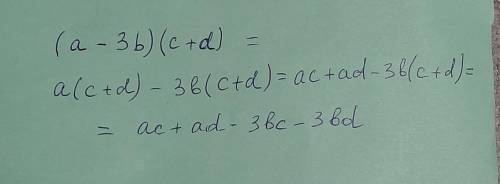 (a - 3b)(c+d) =
a(c+d) - 3b(c+d) = ac+ad-3b(c+d)=
= ac+ad-3bc-3bd